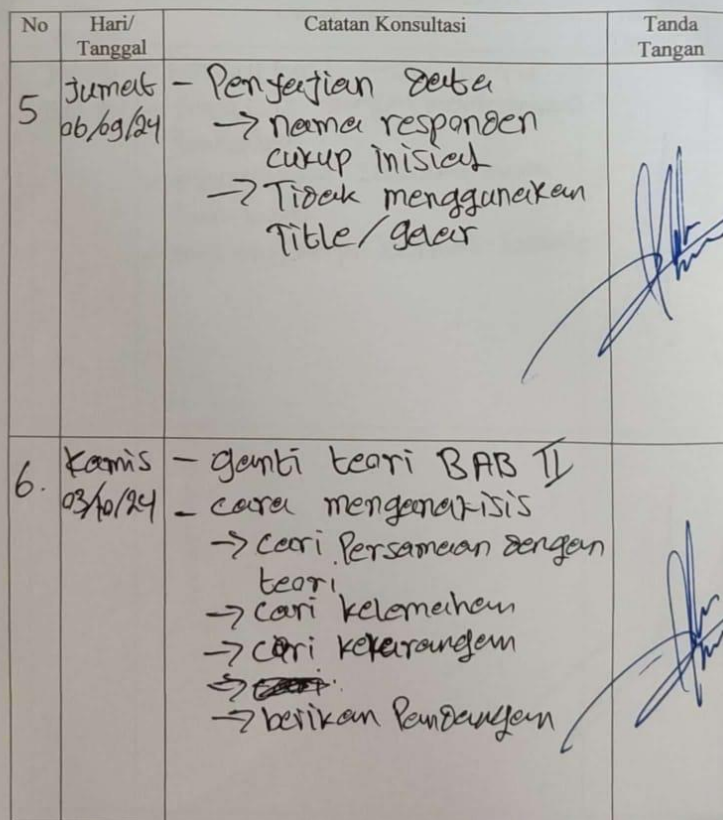 No Hari/ Tanggal Catatan Konsultasi Tanda Tangan
5 Jumat 06/09/24 - Penyajian data
→ nama responden
cukup inisial
→ Tidak menggunakan
Title/gelar
6. Kamis 03/10/24 - ganti teori BAB II
- cara menganalisis
→ cari Persamaan dengan
teori
→ cari kelemahan
→ cari kekurangan
→ berikan Pandangan